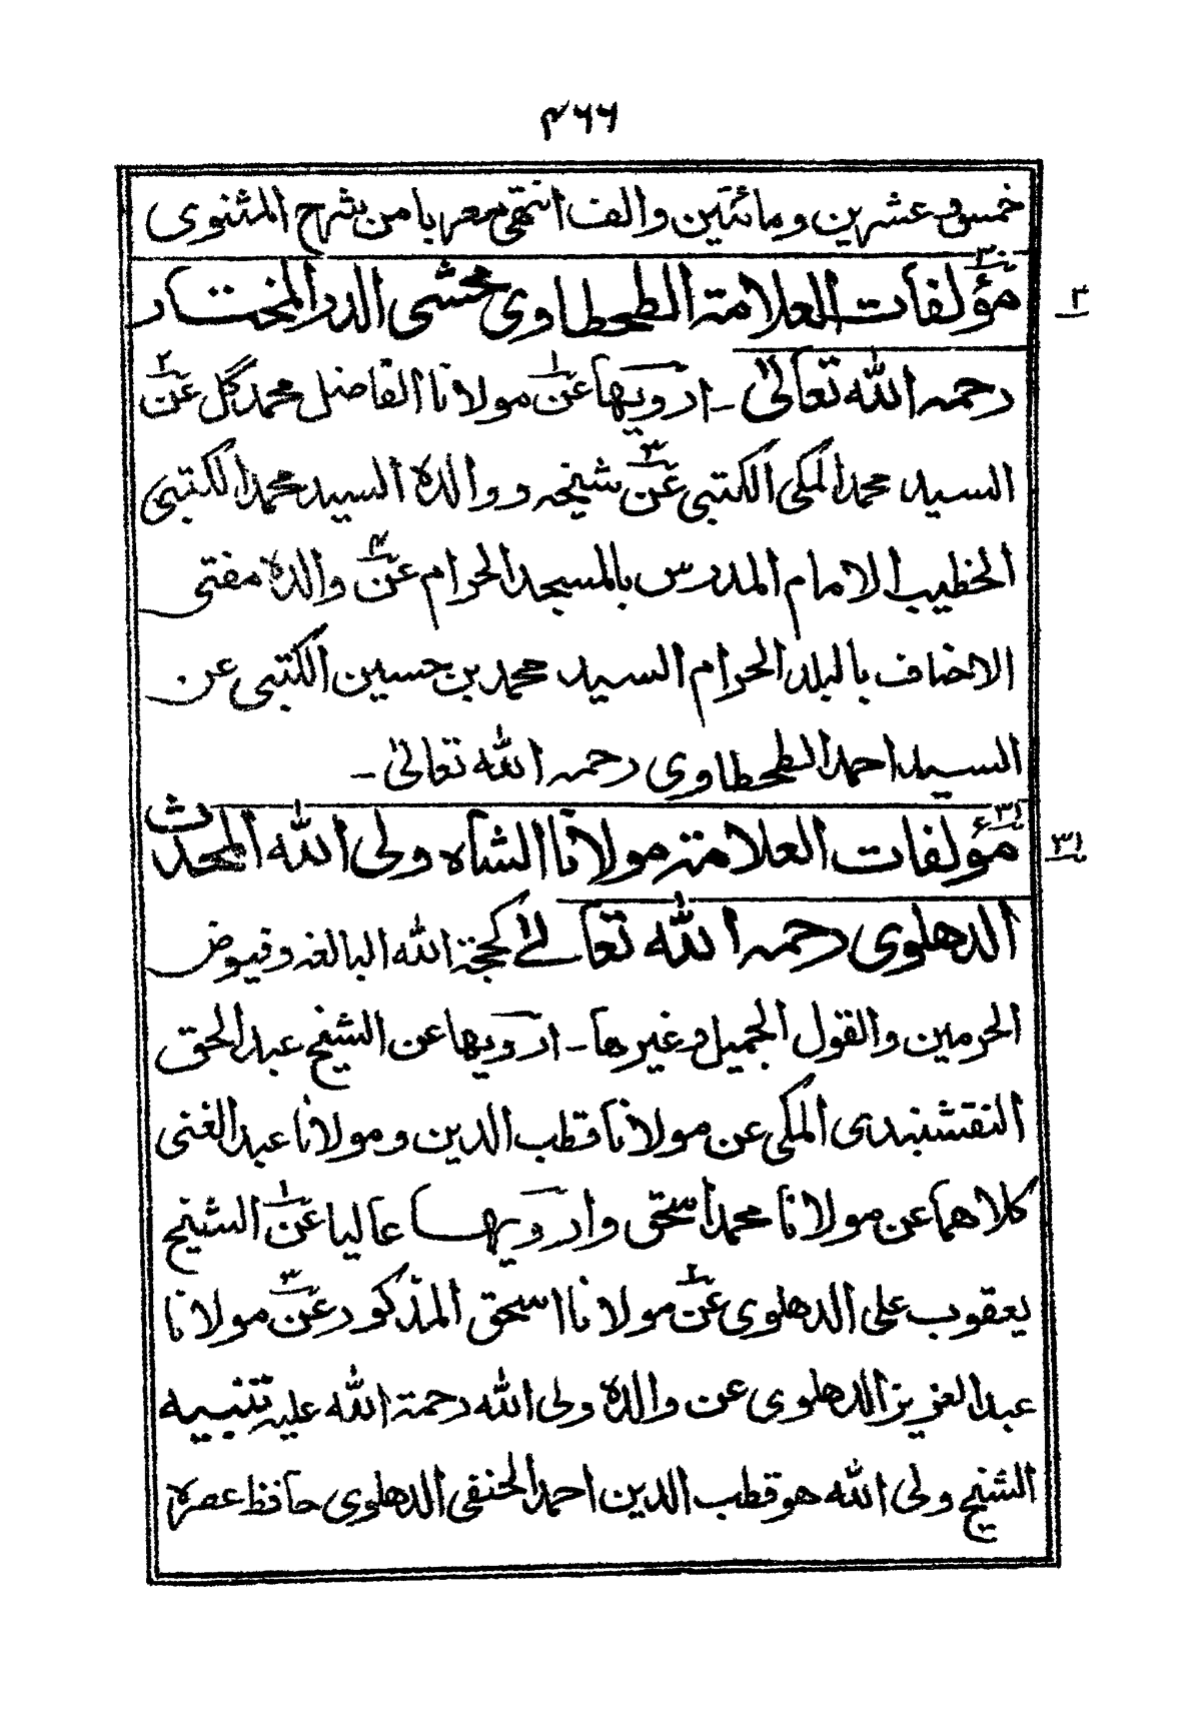 ۴۶۶
خمس وعشرين ومائتين والف انتهى معربا من شرح المثنوى
۳۰
مؤلفات العلامة الطحطاوى محشى الدر المختار
رحمه الله تعالىٰ ـ ارويها عن۱ مولانا الفاضل محمد گل عن۲
السيد محمد المكى الكتبى عن۳ شيخه ووالده السيد محمد الكتبى
الخطيب الامام المدرس بالمسجد الحرام عن۴ والده مفتى
الاحناف بالبلد الحرام السيد محمد بن حسين الكتبى عن
السيد احمد الطحطاوى رحمه الله تعالىٰ ـ
۳۱
مؤلفات العلامة مولانا الشاه ولى الله المحدث
۳۱
الدهلوى رحمه الله تعالےٰ كحجة الله البالغه وفيوض
الحرمين والقول الجميل وغيرها ـ ارويها عن الشيخ عبد الحق
النقشبندى المكى عن مولانا قطب الدين ومولانا عبد الغنى
كلاهما عن مولانا محمد اسحٰق وارويها عاليا عن۱ الشيخ
يعقوب على الدهلوى عن۲ مولانا اسحق المذكور عن۳ مولانا
عبد العزيز الدهلوى عن والده ولى الله رحمة الله عليه تنبيه
الشيخ ولى الله هو قطب الدين احمد الحنفى الدهلوى حافظ عصره